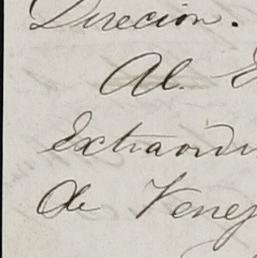 Direcion.
Al. E
Extraordi
de Venez